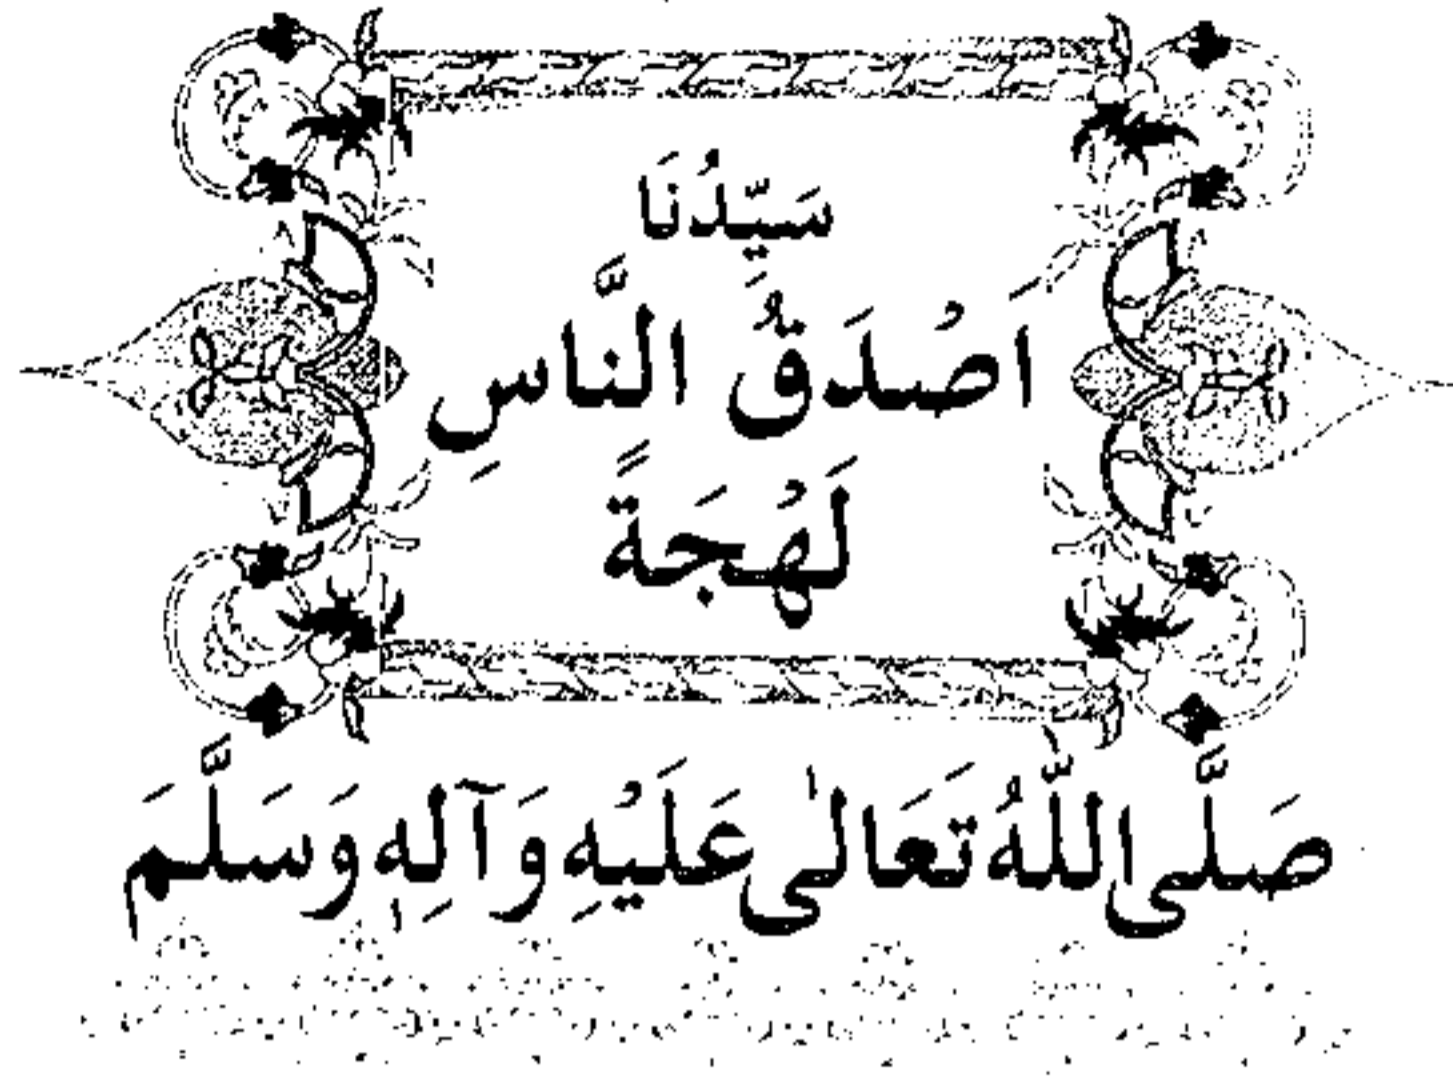 سَيِّدُنَا
اَصْدَقُ النَّاسِ
لَهْجَةً
صَلَّى اللّٰهُ تَعَالٰى عَلَيْهِ وَآلِهٖ وَسَلَّمَ